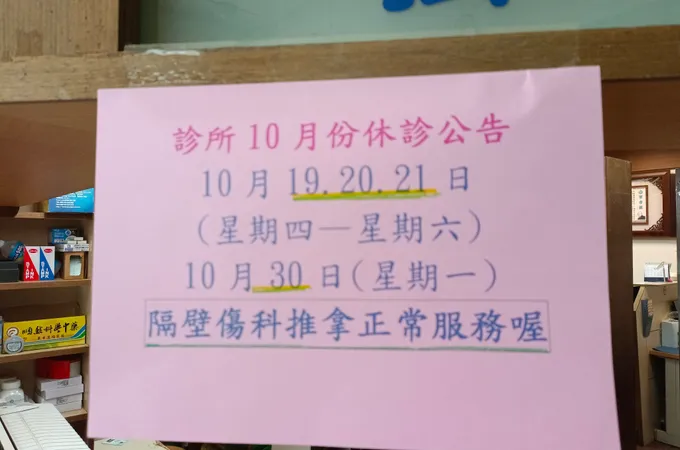 診所10月份休診公告
10月19.20.21日
(星期四—星期六)
10月30日(星期一)
隔壁傷科推拿正常服務喔